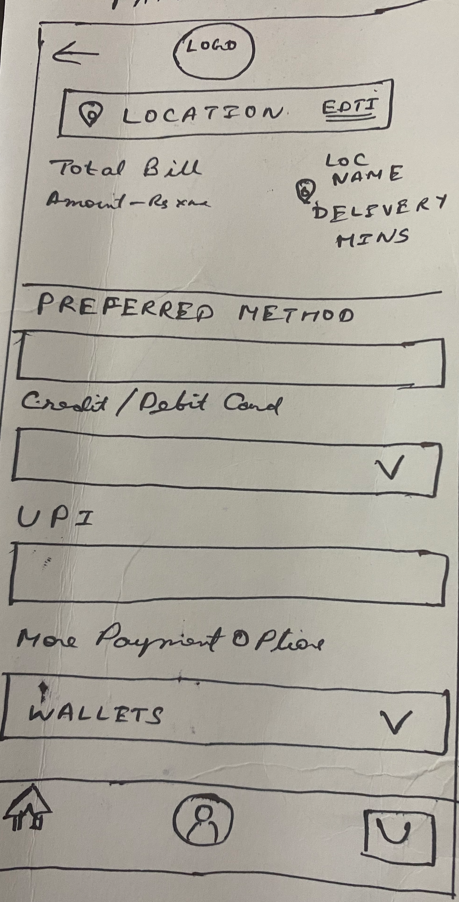 LOGO
LOCATION. EDTI
Total Bill
Amount - Rs xxx
LOC
NAME
DELIVERY
MINS
PREFERRED METHOD
Credit / Debit Card
UPI
More Payment Option
WALLETS